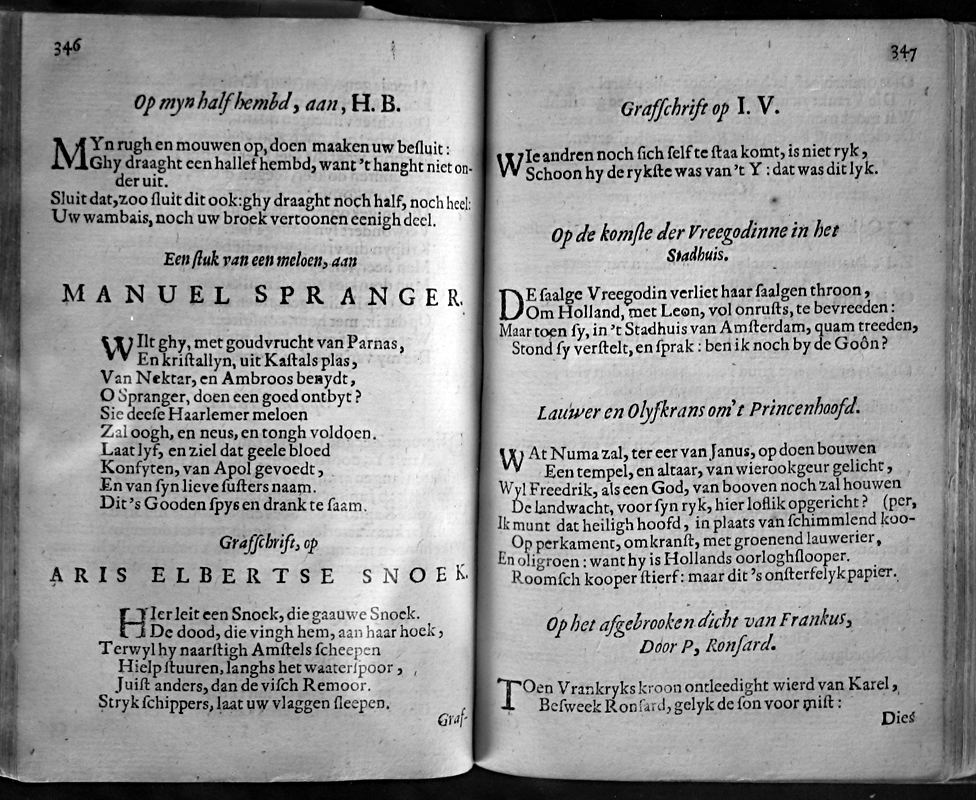 346
Op myn half hembd, aan, H. B.
MYn rugh en mouwen op, doen maaken uw besluit:
Ghy draaght een hallef hembd, want 't hanght niet on-
der uit.
Sluit dat, zoo sluit dit ook: ghy draaght noch half, noch heel:
Uw wambais, noch uw broek vertoonen eenigh deel.
Een stuk van een meloen, aan
MANUEL SPRANGER.
WIlt ghy, met goudvrucht van Parnas,
En kristallyn, uit Kastals plas,
Van Nektar, en Ambroos benydt,
O Spranger, doen een goed ontbyt?
Sie deese Haarlemer meloen
Zal oogh, en neus, en tongh voldoen.
Laat lyf, en ziel dat geele bloed
Konfyten, van Apol gevoedt,
En van syn lieve susters naam.
Dit 's Gooden spys en drank te saam.
Grafschrift, op
ARIS ELBERTSE SNOEK.
HIer leit een Snoek, die gaauwe Snoek.
De dood, die vingh hem, aan haar hoek,
Terwyl hy naarstigh Amstels scheepen
Hielp stuuren, langhs het waaterspoor,
Juist anders, dan de visch Remoor.
Stryk schippers, laat uw vlaggen sleepen.
Graf-
347
Grafschrift op I. V.
WIe andren noch sich self te staa komt, is niet ryk,
Schoon hy de rykste was van 't Y: dat was dit lyk.
Op de komste der Vreegodinne in het
Stadhuis.
DE saalge Vreegodin verliet haar saalgen throon,
Om Holland, met Leon, vol onrusts, te bevreeden:
Maar toen sy, in 't Stadhuis van Amsterdam, quam treeden,
Stond sy verstelt, en sprak: ben ik noch by de Goôn?
Lauwer en Olyfkrans om't Princenhoofd.
WAt Numa zal, ter eer van Janus, op doen bouwen
Een tempel, en altaar, van wierookgeur gelicht,
Wyl Freedrik, als een God, van booven noch zal houwen
De landwacht, voor syn ryk, hier loflik opgericht? (per,
Ik munt dat heiligh hoofd, in plaats van schimmlend koo-
Op perkament, omkranst, met groenend lauwerier,
En oligroen: want hy is Hollands oorloghslooper.
Roomsch kooper stierf: maar dit 's onsterfelyk papier.
Op het afgebrooken dicht van Frankus,
Door P, Ronsard.
TOen Vrankryks kroon ontleedight wierd van Karel,
Besweek Ronsard, gelyk de son voor mist:
Dies